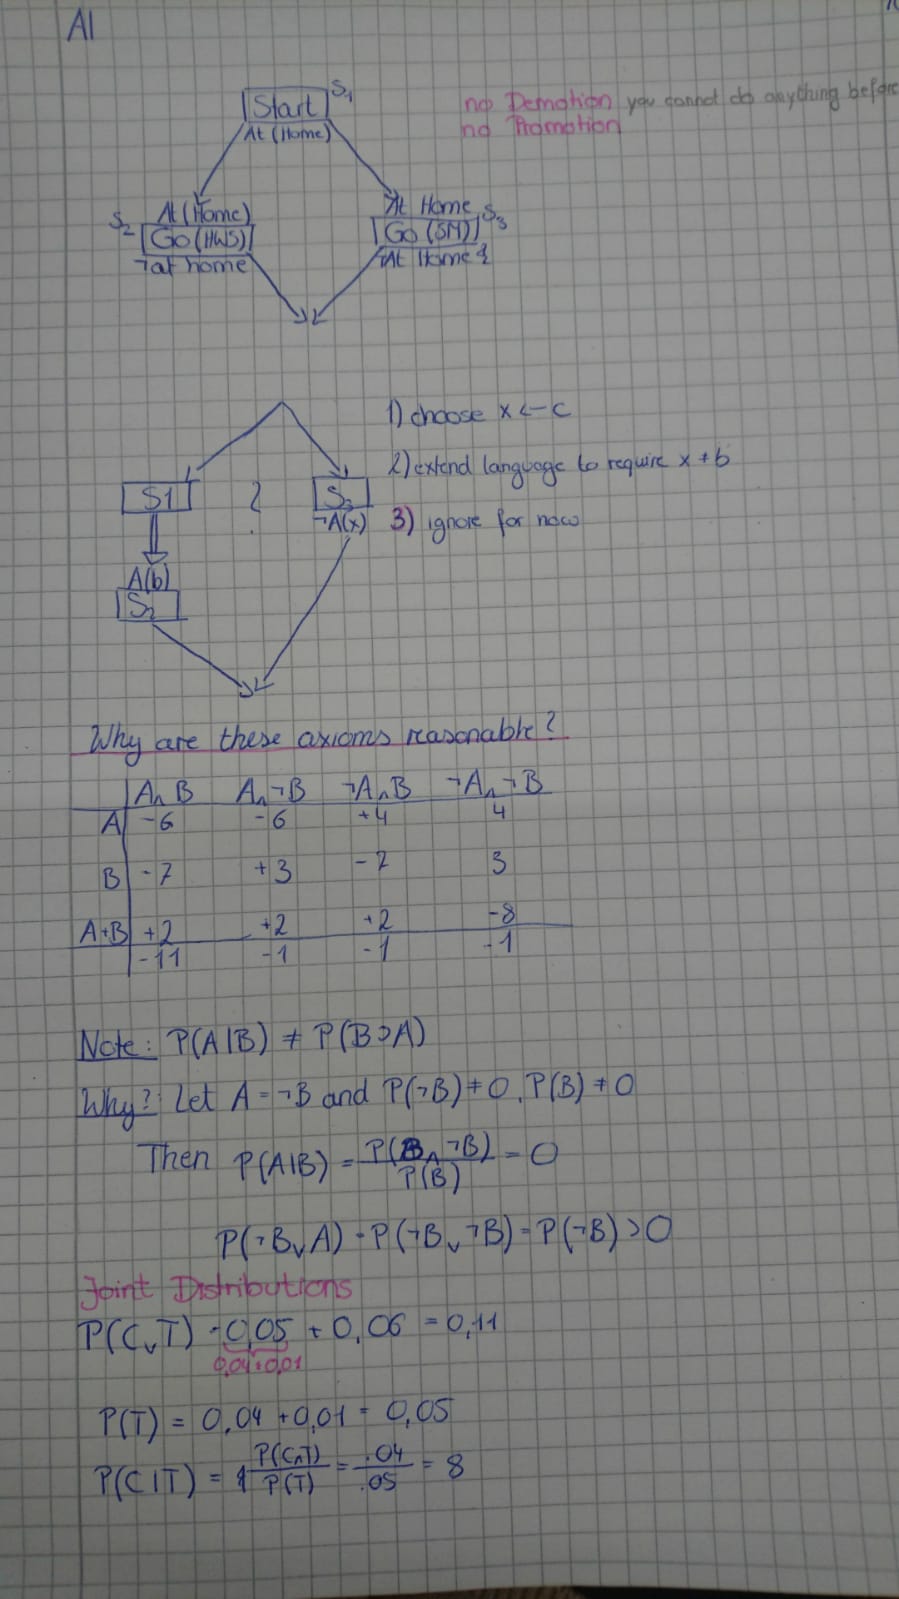 AI
Start S1
At (Home)
no Demotion you cannot do anything before
no Promotion
At (Home)
S2 Go (HWS)
¬at home
At Home
Go (SM) S3
¬At Home
1) choose x ← c
2) extend language to require x ≠ b
3) ignore for now
S1 ? S3
¬A(x)
A(b)
S2
Why are these axioms reasonable?
A∧B A∧¬B ¬A∧B ¬A∧¬B
A -6 -6 +4 4
B -7 +3 -7 3
A+B +2 +2 +2 -8
-11 -1 -1 -1
Note: P(A|B) ≠ P(B⊃A)
Why?: Let A = ¬B and P(¬B) ≠ 0, P(B) ≠ 0
Then P(A|B) = P(B∧¬B) / P(B) = 0
P(¬B∨A) = P(¬B∨¬B) = P(¬B) > 0
Joint Distributions
P(C∨T) = 0,05 + 0,06 = 0,11
0,04+0,01
P(T) = 0,04 + 0,01 = 0,05
P(C|T) = P(C∧T) / P(T) = .04 / .05 = 8